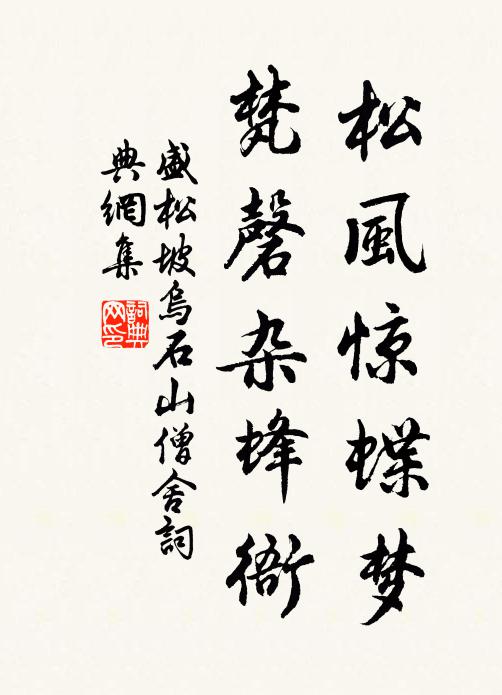 松風惊蝶梦
梵磬杂蜂衙
盛松坡烏石山僧舍詞
典網集
詞典
网印